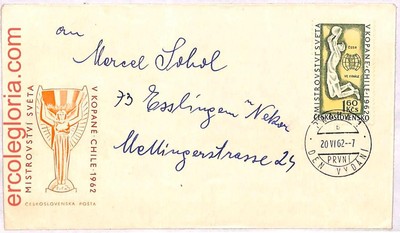 an
Marcel Sokol
73 Esslingen/Nekar
Mettingerstrasse 24
ercolegloria.com
MISTROVSTVÍ SVĚTA
V KOPANÉ·CHILE·1962
ČESKOSLOVENSKÁ POŠTA
MISTROVSTVÍ SVĚTA
V KOPANÉ·CHILE·1962
ČSSR
VE FINÁLE
1.60
Kčs
ČESKOSLOVENSKO
PRVNÍ
20 VI 62-7
DEN VYDÁNÍ